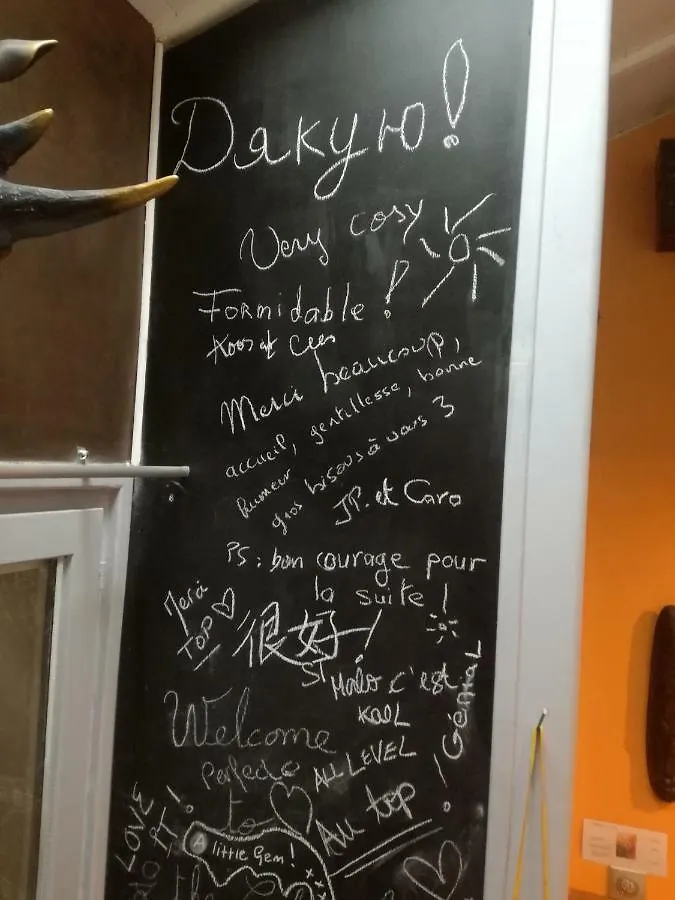 Дякую!
Very cosy
Formidable !
Merci beaucoup,
accueil, gentillesse, bonne
humeur
gros bisous à vous 3
JP. et Caro
PS : bon courage pour
la suite !
Merci
TOP
很好!
St Malo c'est
KOOL
Génial !
Welcome
Perfecto
ALL LEVEL
to
Au top
LOVE
IT !
A little Gem !
the